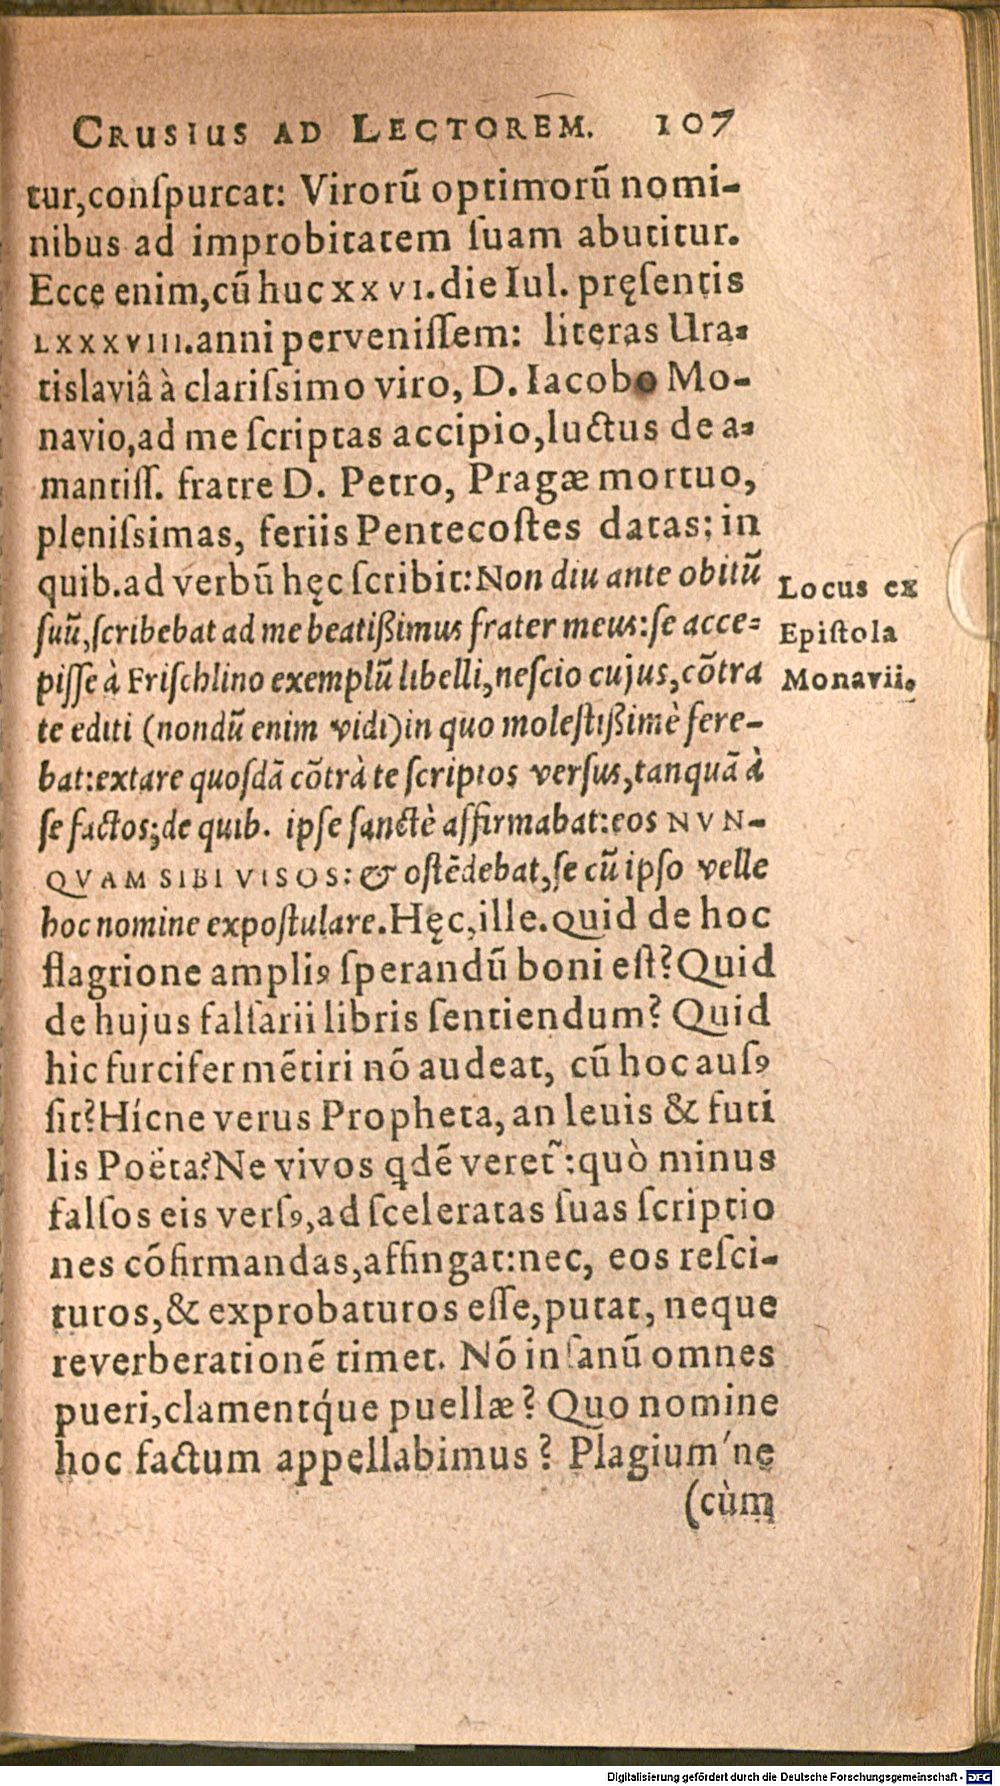 CRUSIUS AD LECTOREM. 107
tur,conſpurcat: Virorũ optimorũ nomi-
nibus ad improbitatem ſuam abutitur.
Ecce enim,cũ huc XXVI.die Iul. pręſentis
LXXXVIII.anni perveniſſem: literas Ura-
tislaviâ à clariſsimo viro, D. Iacobo Mo-
navio,ad me ſcriptas accipio,luctus de a-
mantiſſ. fratre D. Petro, Pragæ mortuo,
pleniſsimas, feriis Pentecoſtes datas; in
quib.ad verbũ hęc ſcribit: Non diu ante obitũ
ſuũ,ſcribebat ad me beatißimus frater meus:ſe acce-
piſſe à Friſchlino exemplũ libelli,neſcio cujus,cõtra
te editi (nondũ enim vidi)in quo moleſtißimè fere-
bat:extare quoſdã cõtrà te ſcriptos verſus,tanquã à
ſe factos;de quib. ipſe ſanctè affirmabat:eos NVN-
QVAM SIBI VISOS: & oſtẽdebat,ſe cũ ipſo velle
hoc nomine expoſtulare. Hęc,ille. Quid de hoc
flagrione ampliꝰ ſperandũ boni eſt? Quid
de hujus falſarii libris ſentiendum? Quid
hic furcifer mẽtiri nõ audeat, cũ hoc auſꝰ
ſit? Hícne verus Propheta, an leuis & futi
lis Poëta? Ne vivos qdẽ veret᷉:quò minus
falſos eis verſꝰ,ad ſceleratas ſuas ſcriptio
nes cõfirmandas,affingat:nec, eos reſci-
turos,& exprobaturos eſſe,putat, neque
reverberationẽ timet. Nõ inſanũ omnes
pueri,clamentq́ue puellæ? Quo nomine
hoc factum appellabimus? Plagium'ne
(cùm
Locus ex
Epiſtola
Monavii.
Digitalisierung gefördert durch die Deutsche Forschungsgemeinschaft - DFG